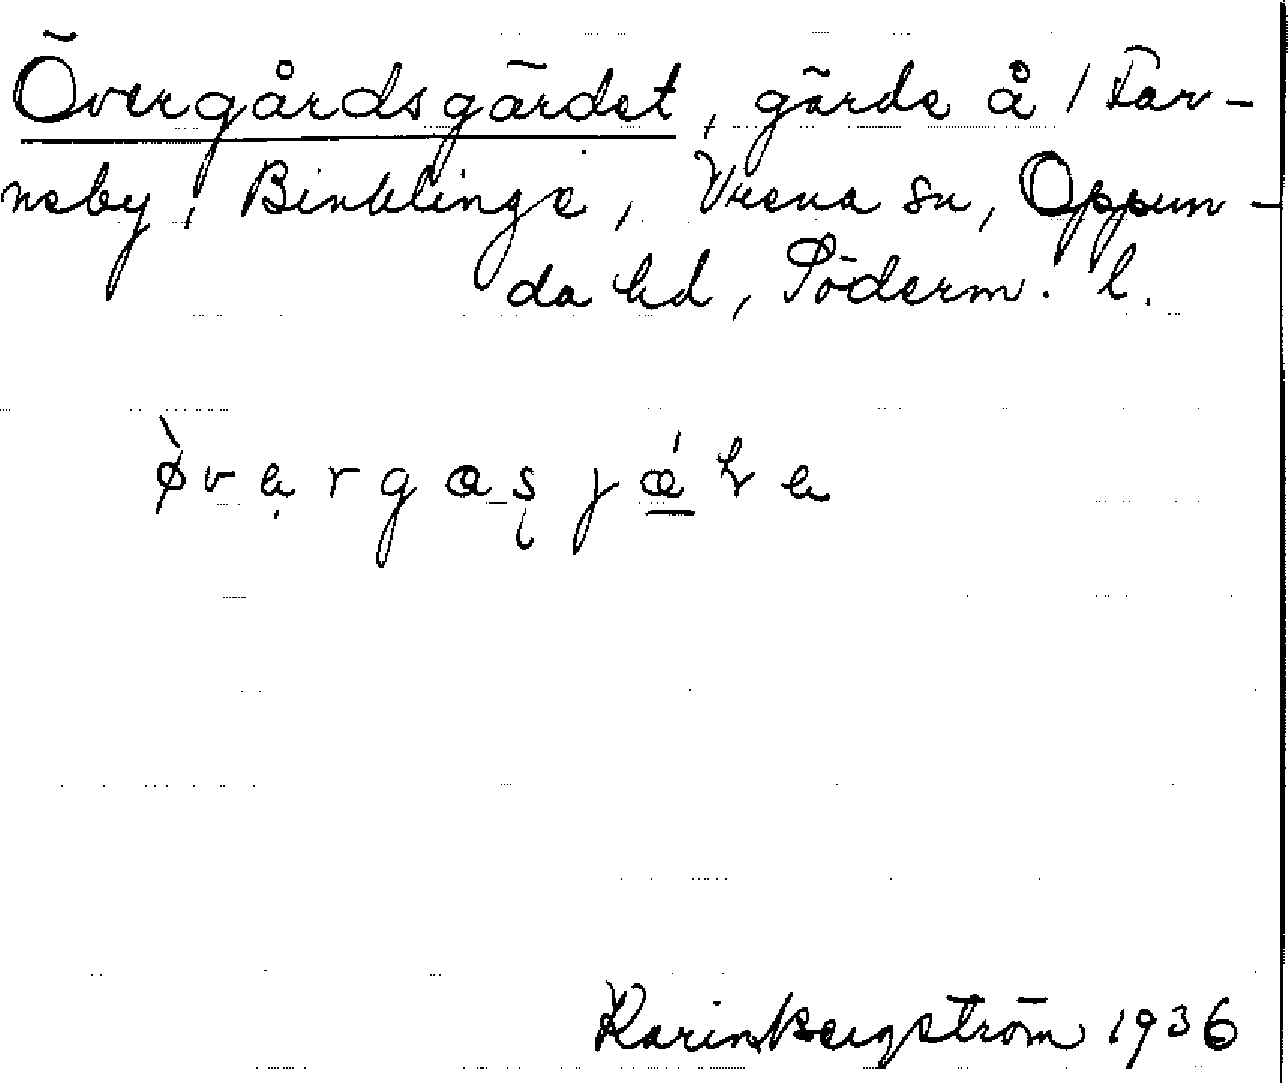 Övergårdsgärdet, gärde å 1 Tär-
neby, Binklinge, Vrena sn, Oppun-
da hd, Söderm. l.
Karin Bergström 1936